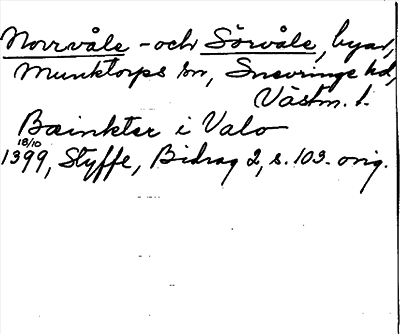 Norrvåle - och Sörvåle, byar,
Munktorps sn, Snevringe hd,
Västm. l.
Bæinkter i Valo
18/10
1399, Styffe, Bidrag 2, s. 103. orig.